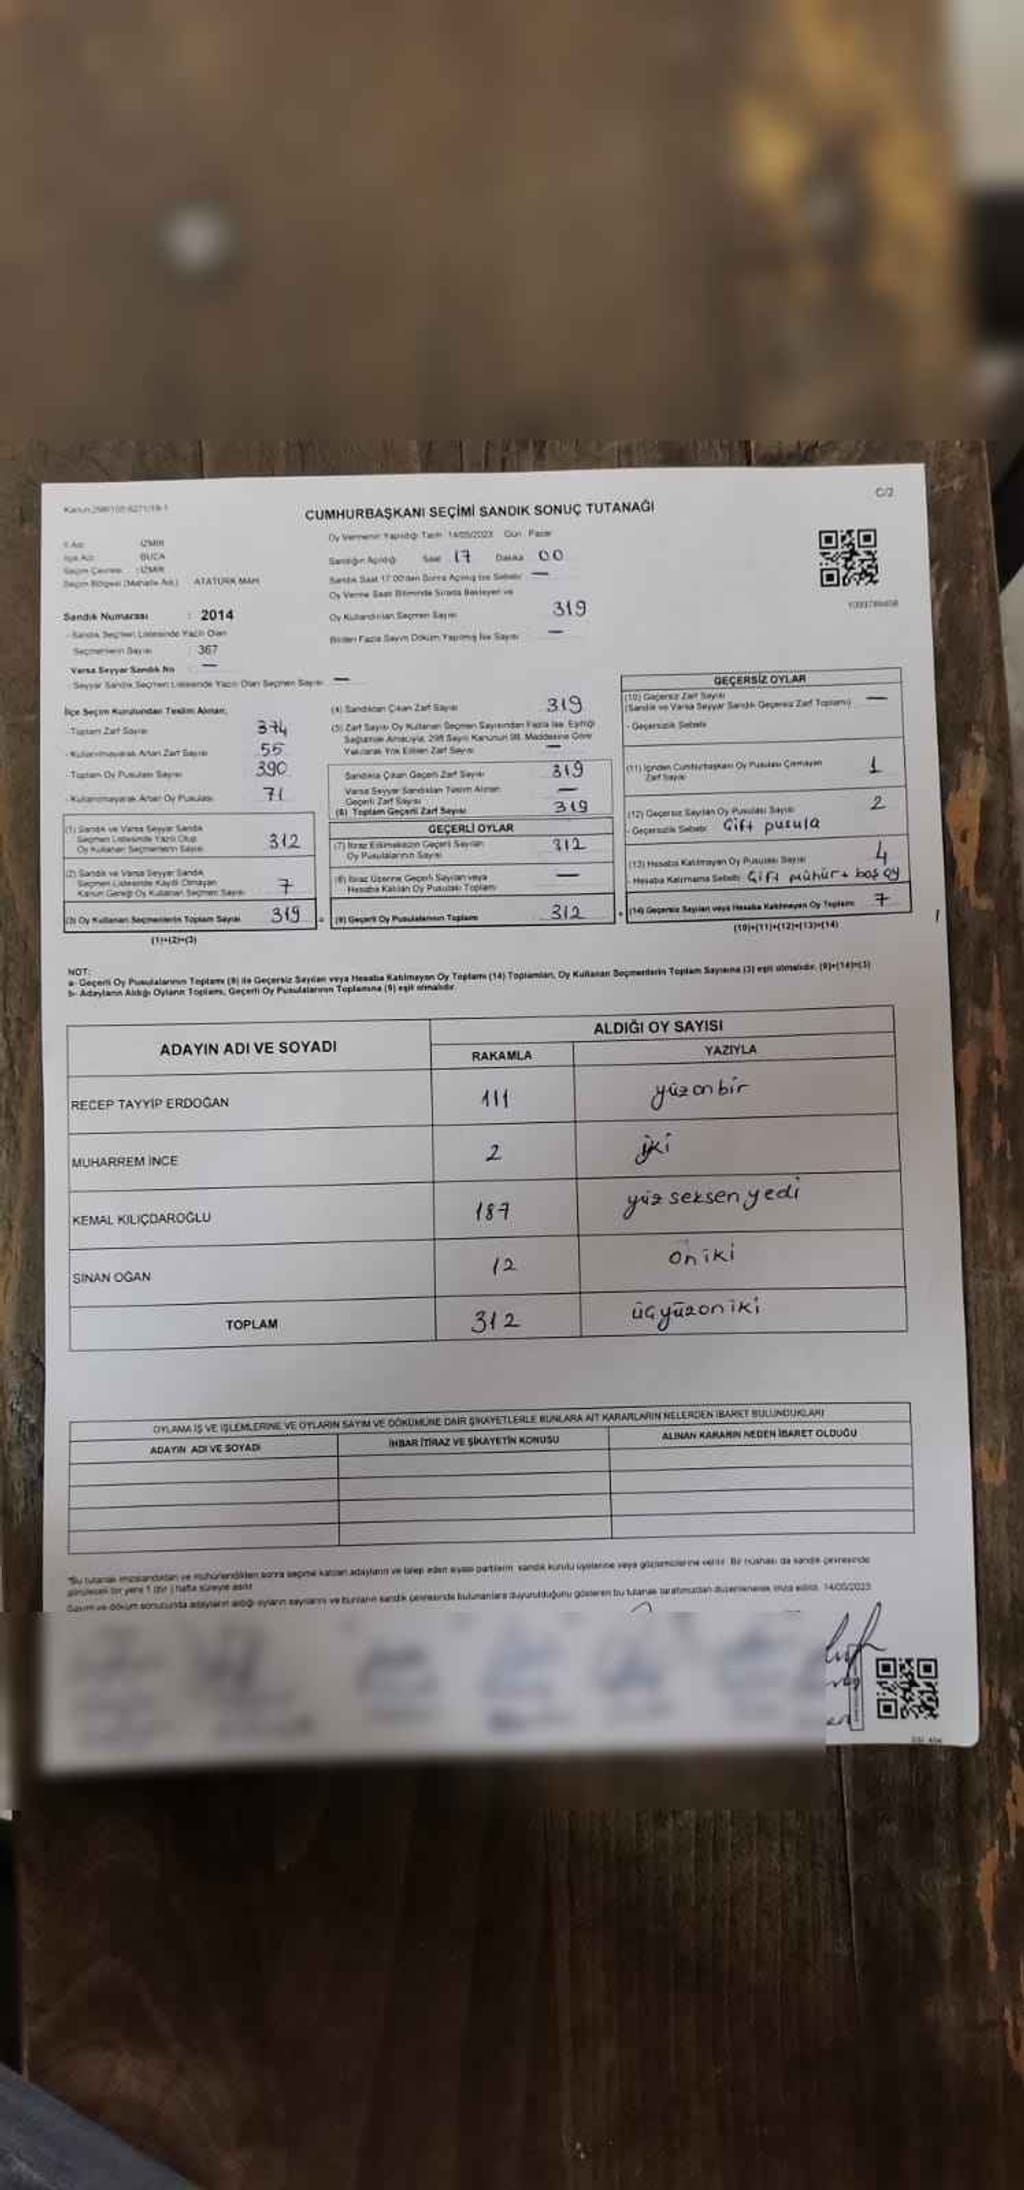 C/2
CUMHURBAŞKANI SEÇİMİ SANDIK SONUÇ TUTANAĞI
İl Adı : İZMİR
İlçe Adı : BUCA
Seçim Çevresi : İZMİR
Seçim Bölgesi (Mahalle Adı) ATATÜRK MAH.
Oy Vermenin Yapıldığı Tarih 14/05/2023 Gün Pazar
Sandığın Açıldığı Saat 17 Dakika 00
Sandık Saat 17:00'den Sonra Açılmış İse Sebebi —
Oy Verme Saati Bitiminde Sırada Bekleyen ve
Oy Kullandırılan Seçmen Sayısı 319
Birden Fazla Sayım Döküm Yapılmış İse Sayısı —
Sandık Numarası : 2014
- Sandık Seçmen Listesinde Yazılı Olan
Seçmenlerin Sayısı : 367
Varsa Seyyar Sandık No —
- Seyyar Sandık Seçmen Listesinde Yazılı Olan Seçmen Sayısı —
İlçe Seçim Kurulundan Teslim Alınan;
- Toplam Zarf Sayısı 374
- Kullanılmayarak Artan Zarf Sayısı 55
- Toplam Oy Pusulası Sayısı 390
- Kullanılmayarak Artan Oy Pusulası 71
(1) Sandık ve Varsa Seyyar Sandık
Seçmen Listesinde Yazılı Olup
Oy Kullanan Seçmenlerin Sayısı 312
(2) Sandık ve Varsa Seyyar Sandık
Seçmen Listesinde Kayıtlı Olmayan
Kanun Gereği Oy Kullanan Seçmen Sayısı 7
(3) Oy Kullanan Seçmenlerin Toplam Sayısı 319
(1)+(2)=(3)
(4) Sandıktan Çıkan Zarf Sayısı 319
(5) Zarf Sayısı Oy Kullanan Seçmen Sayısından Fazla İse, Eşitliği
Sağlamak Amacıyla, 298 Sayılı Kanunun 98. Maddesine Göre
Yakılarak Yok Edilen Zarf Sayısı —
Sandıkta Çıkan Geçerli Zarf Sayısı 319
Varsa Seyyar Sandıktan Teslim Alınan
Geçerli Zarf Sayısı —
(6) Toplam Geçerli Zarf Sayısı 319
GEÇERLİ OYLAR
(7) İtiraz Edilmeksizin Geçerli Sayılan
Oy Pusulalarının Sayısı 312
(8) İtiraz Üzerine Geçerli Sayılan veya
Hesaba Katılan Oy Pusulası Toplamı —
(9) Geçerli Oy Pusulalarının Toplamı 312
GEÇERSİZ OYLAR
(10) Geçersiz Zarf Sayısı
(Sandık ve Varsa Seyyar Sandık Geçersiz Zarf Toplamı) —
- Geçersizlik Sebebi
(11) İçinden Cumhurbaşkanı Oy Pusulası Çıkmayan
Zarf Sayısı 1
(12) Geçersiz Sayılan Oy Pusulası Sayısı 2
- Geçersizlik Sebebi Çift pusula
(13) Hesaba Katılmayan Oy Pusulası Sayısı 4
- Hesaba Katılmama Sebebi Çift mühür + boş oy
(14) Geçersiz Sayılan veya Hesaba Katılmayan Oy Toplamı 7
(10)+(11)+(12)+(13)=(14)
NOT:
a- Geçerli Oy Pusulalarının Toplamı (9) ile Geçersiz Sayılan veya Hesaba Katılmayan Oy Toplamı (14) Toplamları, Oy Kullanan Seçmenlerin Toplam Sayısına (3) eşit olmalıdır. (9)+(14)=(3)
b- Adayların Aldığı Oyların Toplamı, Geçerli Oy Pusulalarının Toplamına (9) eşit olmalıdır.
ADAYIN ADI VE SOYADI ALDIĞI OY SAYISI
RAKAMLA YAZIYLA
RECEP TAYYİP ERDOĞAN 111 yüzonbir
MUHARREM İNCE 2 iki
KEMAL KILIÇDAROĞLU 187 yüz seksen yedi
SİNAN OĞAN 12 on iki
TOPLAM 312 üçyüzoniki
OYLAMA İŞ VE İŞLEMLERİNE VE OYLARIN SAYIM VE DÖKÜMÜNE DAİR ŞİKAYETLERLE BUNLARA AİT KARARLARIN NELERDEN İBARET BULUNDUKLARI
ADAYIN ADI VE SOYADI İHBAR İTİRAZ VE ŞİKAYETİN KONUSU ALINAN KARARIN NEDEN İBARET OLDUĞU
"Bu tutanak imzalandıktan ve mühürlendikten sonra seçime katılan adayların ve talep eden siyasi partilerin sandık kurulu üyelerine veya gözlemcilerine verilir. Bir nüshası da sandık çevresinde
görülecek bir yere 1 (bir) hafta süreyle asılır.
Sayım ve döküm sonucunda adayların aldığı oyların sayılarını ve bunların sandık çevresinde bulunanlara duyurulduğunu gösteren bu tutanak tarafımızdan düzenlenerek imza edildi. 14/05/2023